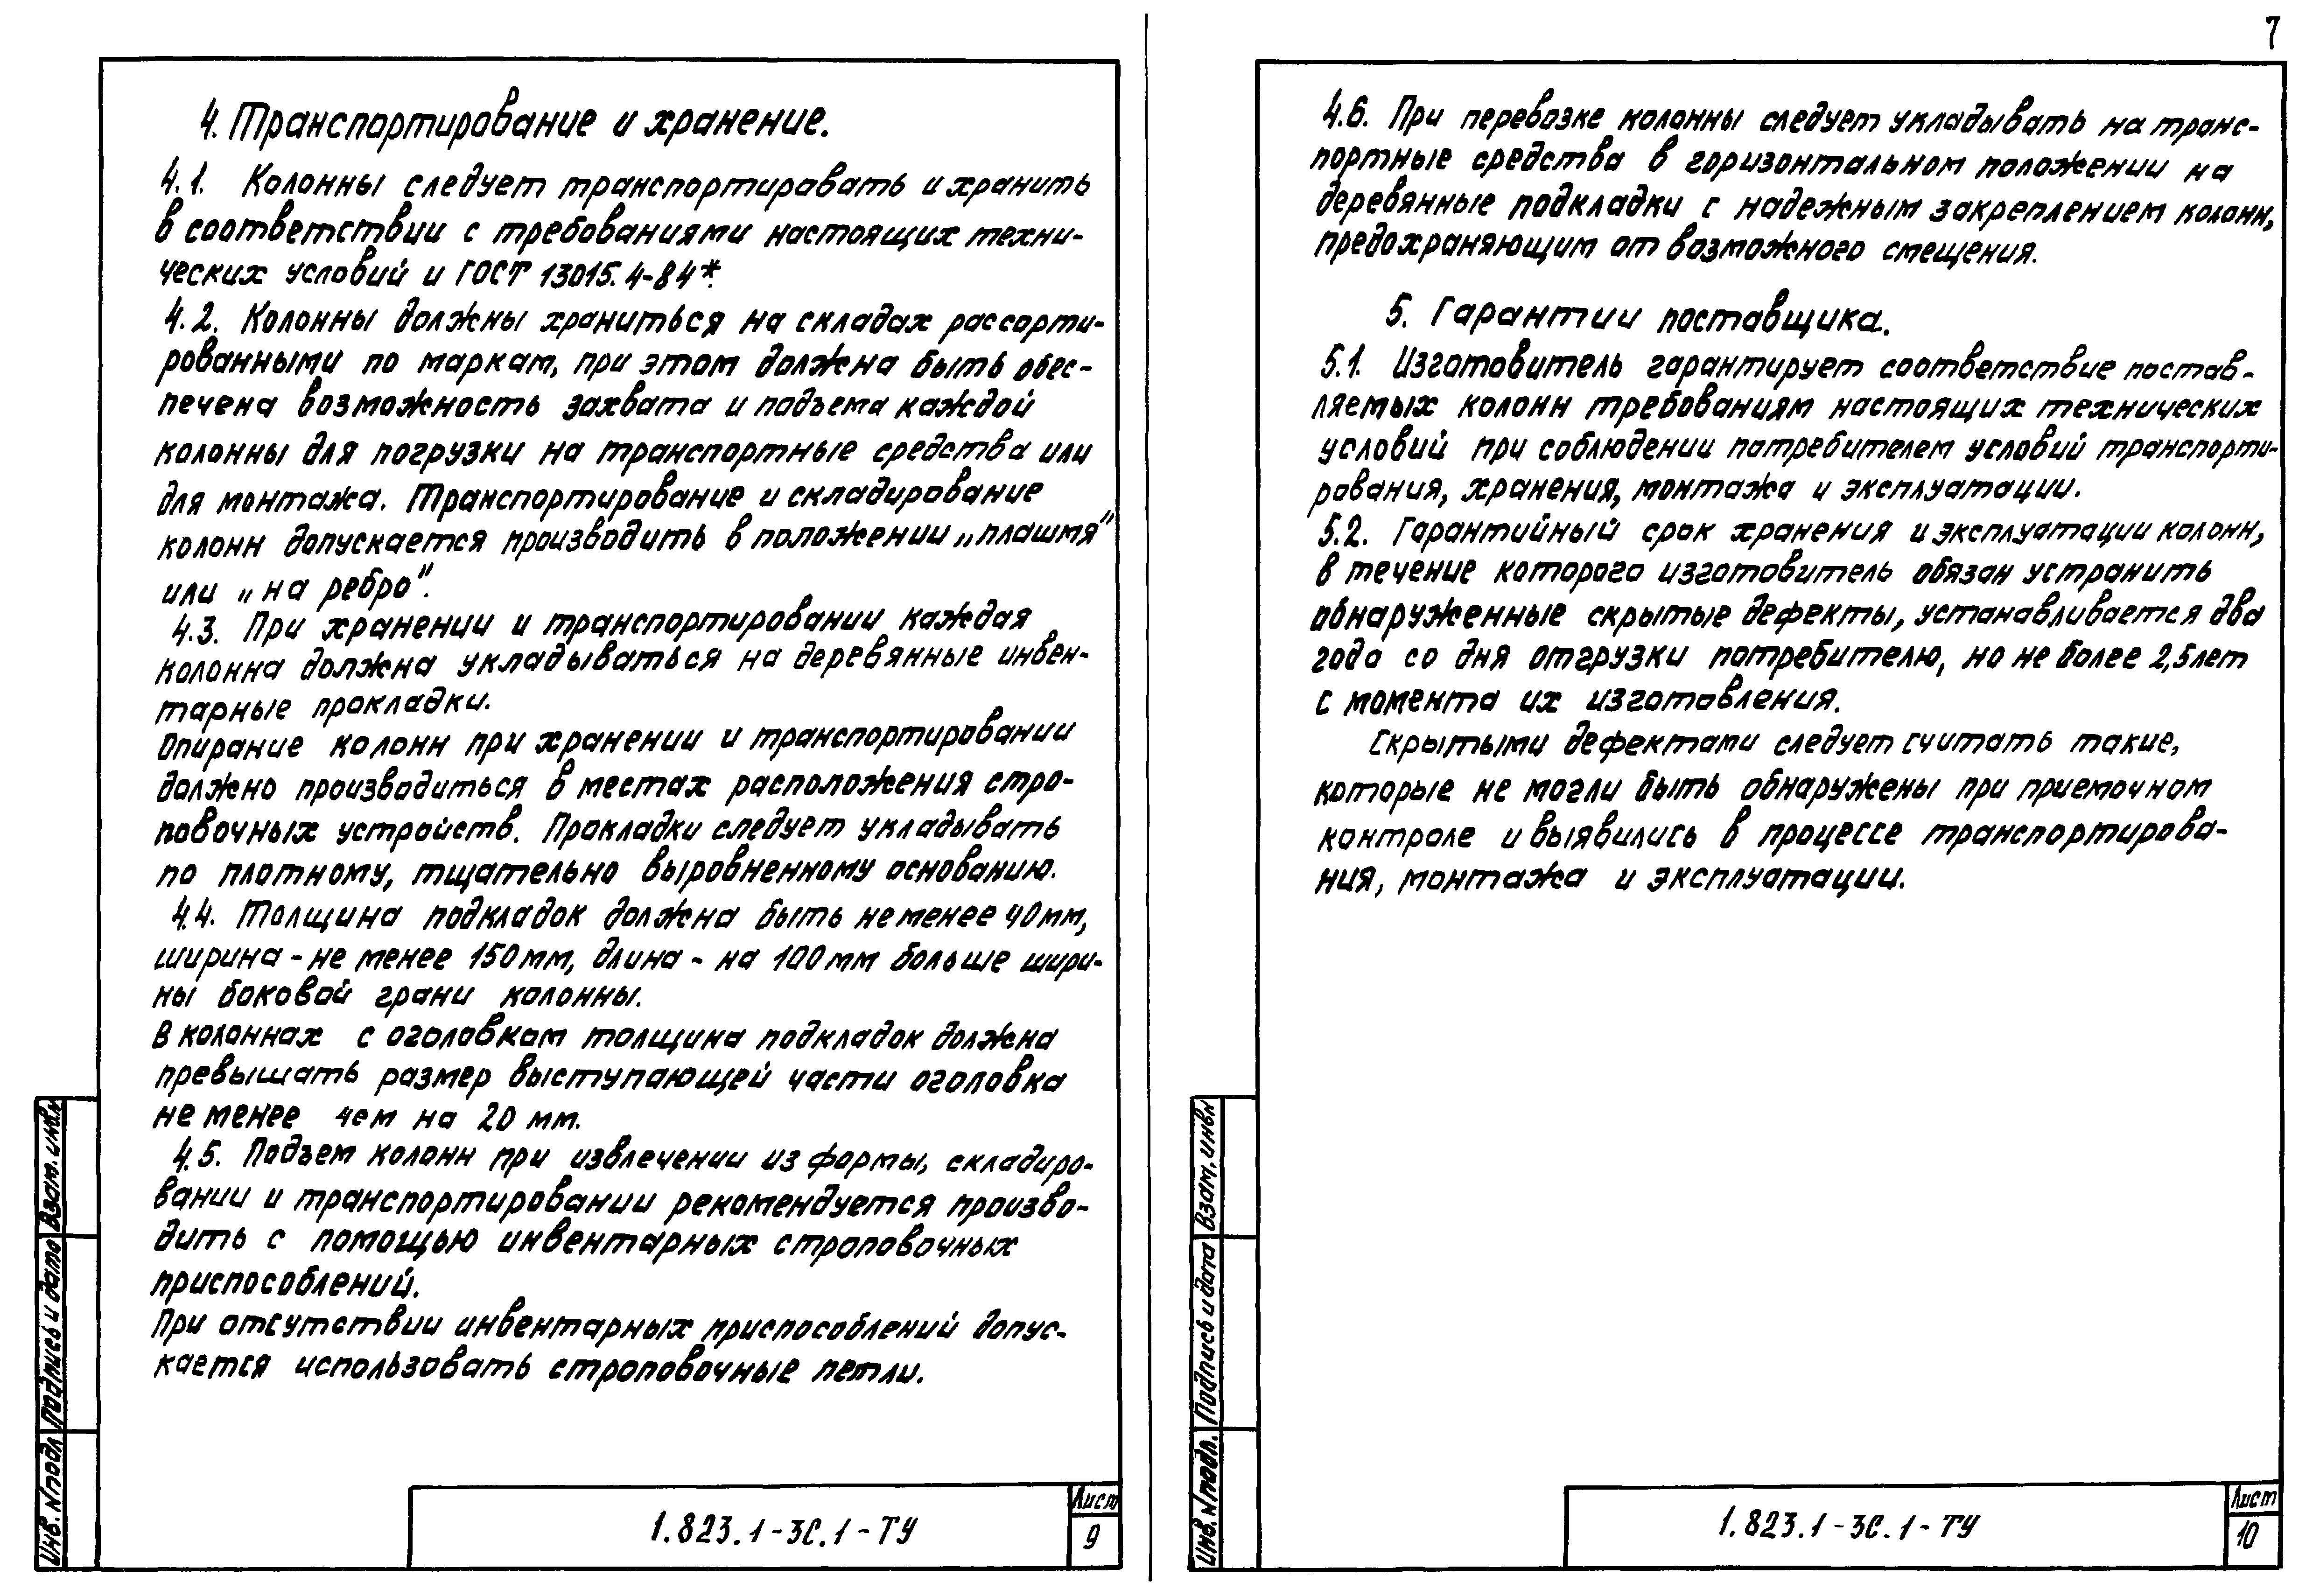 7
4. Транспортирование и хранение.
4.1. Колонны следует транспортировать и хранить
в соответствии с требованиями настоящих техни-
ческих условий и ГОСТ 13015.4-84*.
4.2. Колонны должны храниться на складах рассорти-
рованными по маркам, при этом должна быть обес-
печена возможность захвата и подъема каждой
колонны для погрузки на транспортные средства или
для монтажа. Транспортирование и складирование
колонн допускается производить в положении „плашмя"
или „на ребро".
4.3. При хранении и транспортировании каждая
колонна должна укладываться на деревянные инвен-
тарные прокладки.
Опирание колонн при хранении и транспортировании
должно производиться в местах расположения стро-
повочных устройств. Прокладки следует укладывать
по плотному, тщательно выровненному основанию.
4.4. Толщина подкладок должна быть не менее 40мм,
ширина - не менее 150мм, длина - на 100мм больше шири-
ны боковой грани колонны.
В колоннах с оголовком толщина подкладок должна
превышать размер выступающей части оголовка
не менее чем на 20 мм.
4.5. Подъем колонн при извлечении из формы, складиро-
вании и транспортировании рекомендуется произво-
дить с помощью инвентарных строповочных
приспособлений.
При отсутствии инвентарных приспособлений допус-
кается использовать строповочные петли.
Инв. N подл Подпись и дата Взам. инв.N
1.823.1-3С.1-ТУ
Лист
9
4.6. При перевозке колонны следует укладывать на транс-
портные средства в горизонтальном положении на
деревянные подкладки с надежным закреплением колонн,
предохраняющим от возможного смещения.
5. Гарантии поставщика.
5.1. Изготовитель гарантирует соответствие постав-
ляемых колонн требованиям настоящих технических
условий при соблюдении потребителем условий транспорти-
рования, хранения, монтажа и эксплуатации.
5.2. Гарантийный срок хранения и эксплуатации колонн,
в течение которого изготовитель обязан устранить
обнаруженные скрытые дефекты, устанавливается два
года со дня отгрузки потребителю, но не более 2,5 лет
с момента их изготовления.
Скрытыми дефектами следует считать такие,
которые не могли быть обнаружены при приемочном
контроле и выявились в процессе транспортирова-
ния, монтажа и эксплуатации.
Инв. N подл. Подпись и дата Взам. инв N
1.823.1-3С.1-ТУ
Лист
10